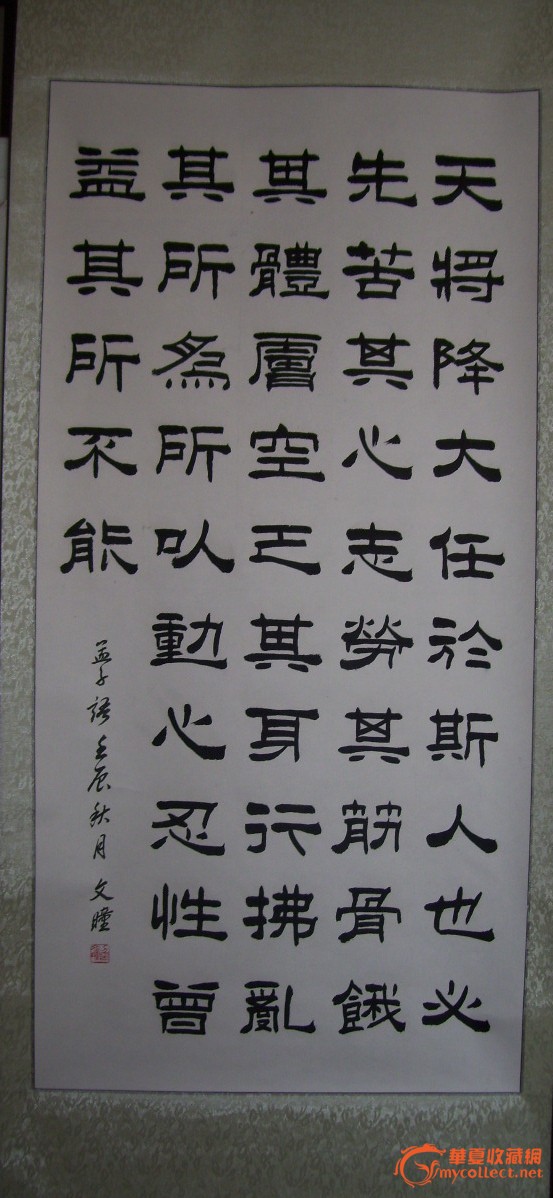 天將降大任於斯人也必
先苦其心志勞其筋骨餓
其體膚空乏其身行拂亂
其所為所以動心忍性曾
益其所不能
孟子語壬辰秋月 文瞳
華夏收藏網
mycollect.net